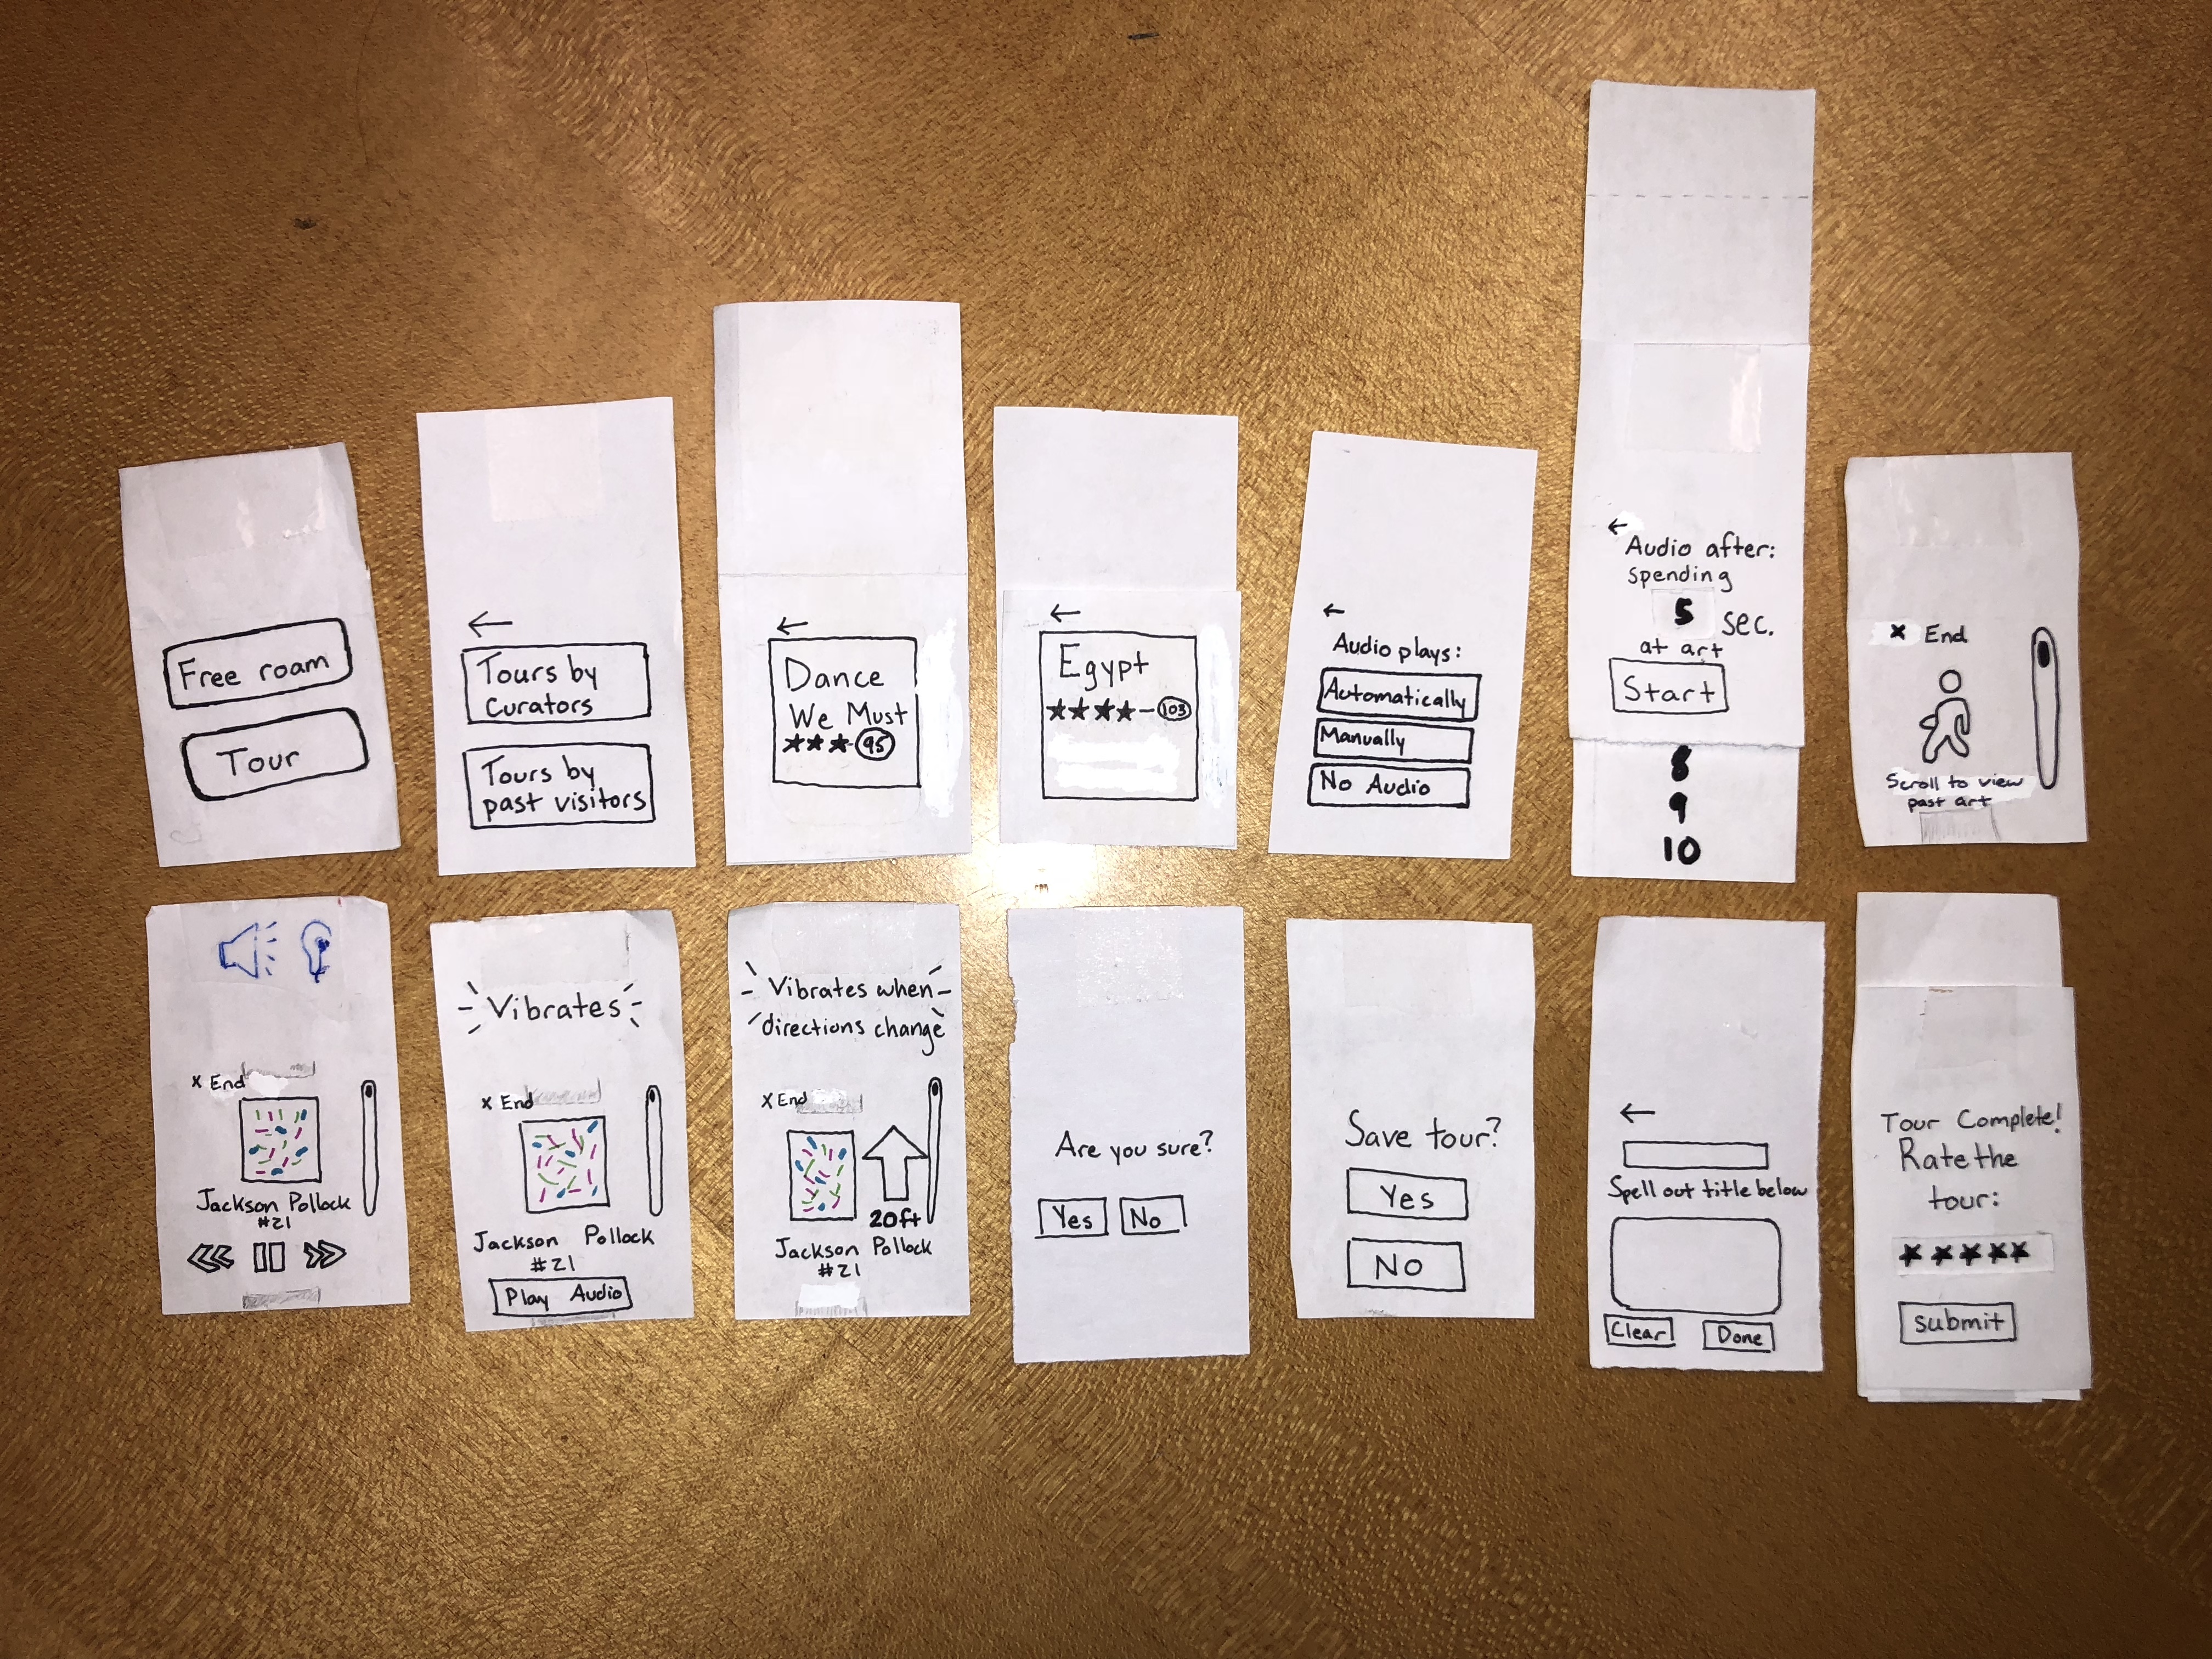 Free roam
Tour
←
Tours by
Curators
Tours by
past visitors
←
Dance
We Must
★★★-95
←
Egypt
★★★★-103
←
Audio plays:
Automatically
Manually
No Audio
←
Audio after:
spending
5 sec.
at art
Start
8
9
10
x End
Scroll to view
past art
x End
Jackson Pollock
#21
Vibrates
x End
Jackson Pollock
#21
Play Audio
Vibrates when
directions change
x End
20ft
Jackson Pollock
#21
Are you sure?
Yes No
Save tour?
Yes
No
←
Spell out title below
Clear Done
Tour Complete!
Rate the
tour:
★★★★★
submit